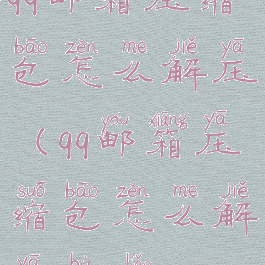 qq邮箱压缩
bāo zěn me jiě yā
包怎么解压
yóu xiāng yā
(qq邮箱压
suō bāo zěn me jiě
缩包怎么解